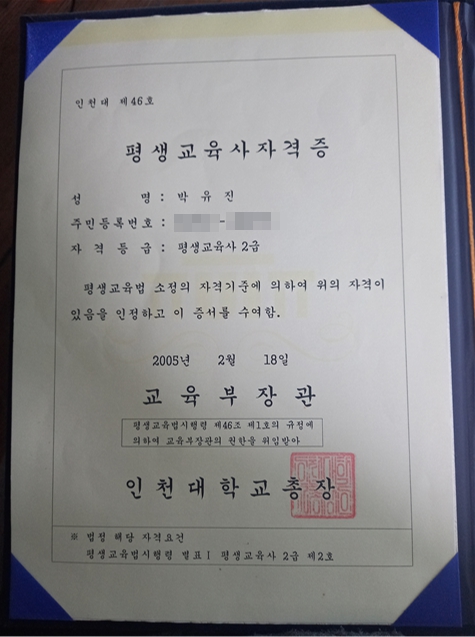 인천대 제46호
평생교육사자격증
성 명 : 박유진
주민등록번호 : -
자격등급 : 평생교육사 2급
평생교육법 소정의 자격기준에 의하여 위의 자격이
있음을 인정하고 이 증서를 수여함.
2005년 2월 18일
교육부장관
평생교육법시행령 제46조 제1호의 규정에
의하여 교육부장관의 권한을 위임받아
인천대학교총장
※ 법정 해당 자격요건
평생교육법시행령 별표Ⅰ 평생교육사 2급 제2호